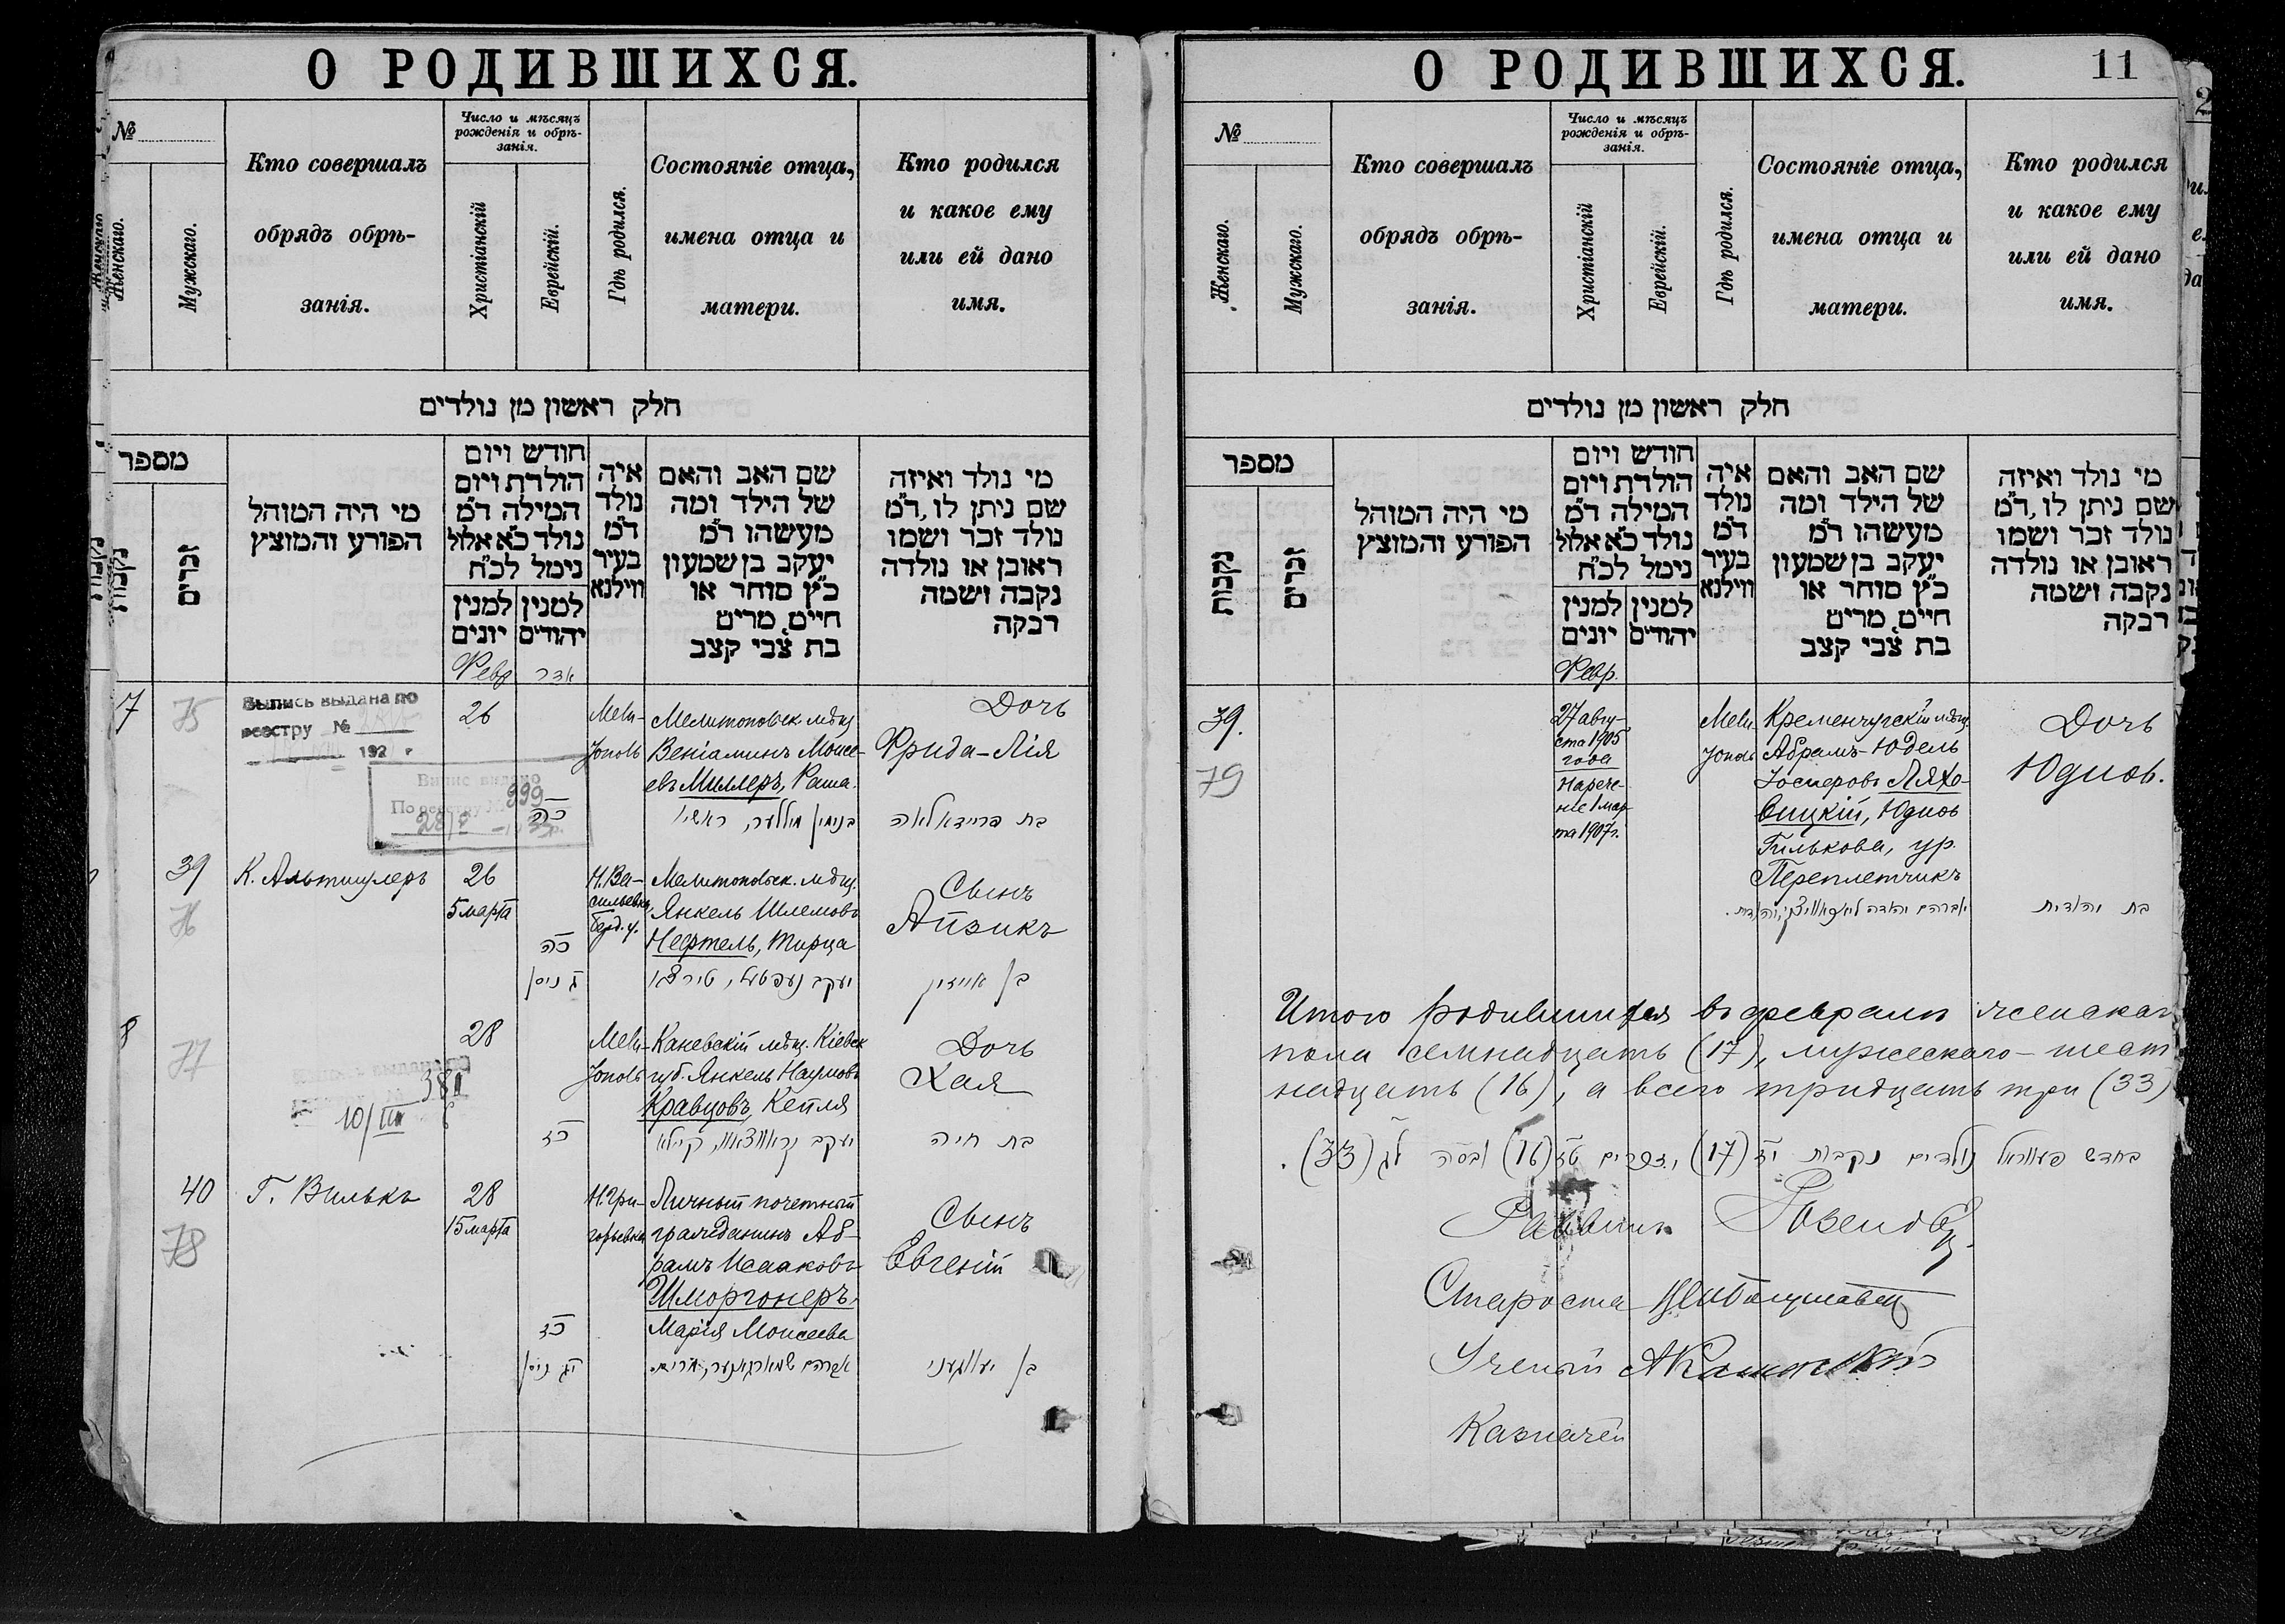 О РОДИВШИХСЯ.
№
Женскаго.
Мужскаго.
Кто совершалъ
обрядъ обрѣ-
занія.
Число и мѣсяцъ
рожденія и обрѣ-
занія.
Христіанскій
Еврейскій.
Гдѣ родился.
Состояніе отца,
имена отца и
матери.
Кто родился
и какое ему
или ей дано
имя.
חלק ראשון מן נולדים
מספר
נקבות
זכרים
מי היה המוהל
הפורע והמוצץ
חודש ויום
הולדת ויום
המילה ד״מ
נולד כ״א אלול
נימל לכ״ח
למנין יונים
למנין יהודים
איה
נולד
ד״מ
בעיר
ווילנא
שם האב והאם
של הילד ומה
מעשהו ד״מ
יעקב בן שמעון
כ״ץ סוחר או
חיים, מרים
בת צבי קצב
מי נולד ואיזה
שם ניתן לו, ד״מ
נולד זכר ושמו
ראובן או נולדה
נקבה ושמה
רבקה
Февр
אדר
7
75
Выпись выдана по
реестру №
192 г
26
כה
Мели-
тополь
Мелитопольск. мѣщ.
Веніаминъ Моисе-
евъ Миллеръ, Раша.
בנימין מיללער, ראשי
Дочь
Фрида-Лія
בת פריידא לאה
Випис видано
По реєстру №
999
39
76
К. Альтшулеръ
26
5 марта
כה
ג ניסן
Н. Ва-
сильевка,
Берд. у.
Мелитопольск. мѣщ.
Янкель Шлемовъ
Нефтель, Тирца
יעקב נעפטעל, טירצה
Сынъ
Айзикъ
בן אייזיק
8
77
381
10/III
28
כז
Мели-
тополь
Каневскій мѣщ. Кіевск
губ. Янкель Наумовъ
Кравцовъ, Кейля
יעקב קראווצאוו, קיילא
Дочь
Хая
בת חיה
40
78
Г. Вилькъ
28
15 марта
כז
יג ניסן
Н. Гри-
горьевка
Личный почетный
гражданинъ Аб-
рамъ Исааковъ
Шморгонеръ,
Марія Моисеева
אברהם שמארגאנער, מרים.
Сынъ
Евгеній
בן יעווגעני
О РОДИВШИХСЯ.
11
№
Женскаго.
Мужскаго.
Кто совершалъ
обрядъ обрѣ-
занія.
Число и мѣсяцъ
рожденія и обрѣ-
занія.
Христіанскій
Еврейскій.
Гдѣ родился.
Состояніе отца,
имена отца и
матери.
Кто родился
и какое ему
или ей дано
имя.
חלק ראשון מן נולדים
מספר
נקבות
זכרים
מי היה המוהל
הפורע והמוצץ
חודש ויום
הולדת ויום
המילה ד״מ
נולד כ״א אלול
נימל לכ״ח
למנין יונים
למנין יהודים
איה
נולד
ד״מ
בעיר
ווילנא
שם האב והאם
של הילד ומה
מעשהו ד״מ
יעקב בן שמעון
כ״ץ סוחר או
חיים, מרים
בת צבי קצב
מי נולד ואיזה
שם ניתן לו, ד״מ
נולד זכר ושמו
ראובן או נולדה
נקבה ושמה
רבקה
Февр.
39.
79
27 авгу-
ста 1905
года
Нарече-
ніе 1 мар-
та 1907 г.
Мели-
тополь
Кременчугскій мѣщ.
Абрамъ-Юдель
Іосперовъ Ляхо-
вицкій, Юдиѳь
Гилькова, ур.
Переплетчикъ
Дочь
Юдиѳь.
בת יהודית
Итого родившихся въ февралѣ женскаго
пола семнадцать (17), мужескаго — шест
надцать (16), а всего тридцать три (33)
בחדש פעווראל נולדים נקבות יז (17) זכרים טז (16) ובסה לג (33).
Раввинъ
Староста
Ученый
Казначей